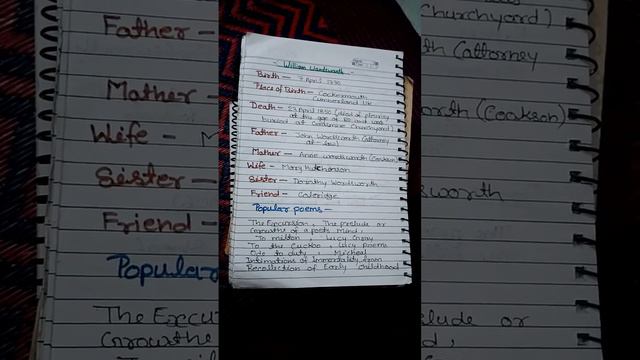 William Wordsworth
Birth - 7 April 1770
Place of Birth - Cockermouth
Cumberland UK
Death - 23 April 1850 (died of pleurisy
at the age of 80 and was
buried at Grasmere Churchyard)
Father - John Wordsworth (attorney
at law)
Mother - Anne Wordsworth (Cookson)
Wife - Mary Hutchinson
Sister - Dorothy Wordsworth
Friend - Coleridge
Popular poems -
The Excursion, The prelude or
Growths of a poets mind,
To milton, Lucy Gray
To the Cuckoo, Lucy poems
Ode to duty, Micheal
Intimations of Immortality from
Recollection of Early childhood